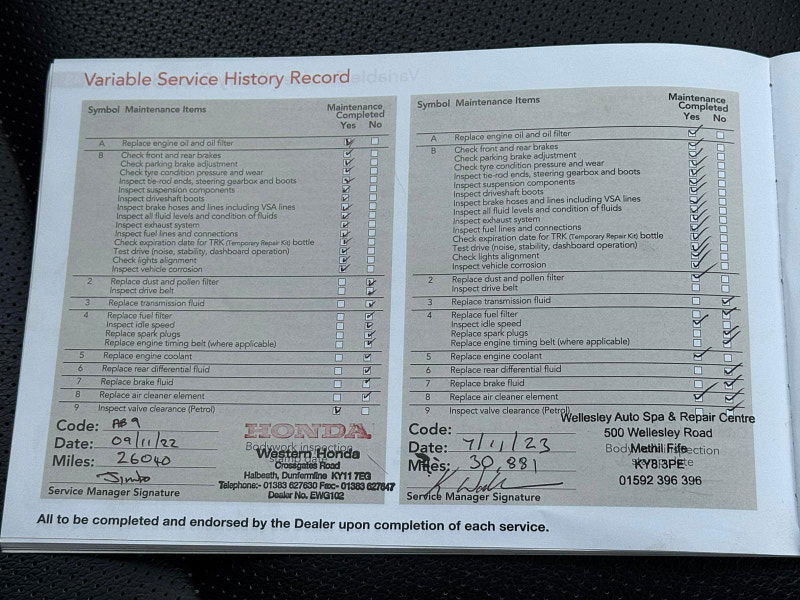 Variable Service History Record
Symbol Maintenance Items
Maintenance Completed
Yes No
A Replace engine oil and oil filter
B Check front and rear brakes
Check parking brake adjustment
Check tyre condition pressure and wear
Inspect tie-rod ends, steering gearbox and boots
Inspect suspension components
Inspect driveshaft boots
Inspect brake hoses and lines including VSA lines
Inspect all fluid levels and condition of fluids
Inspect exhaust system
Inspect fuel lines and connections
Check expiration date for TRK (Temporary Repair Kit) bottle
Test drive (noise, stability, dashboard operation)
Check lights alignment
Inspect vehicle corrosion
2 Replace dust and pollen filter
Inspect drive belt
3 Replace transmission fluid
4 Replace fuel filter
Inspect idle speed
Replace spark plugs
Replace engine timing belt (where applicable)
5 Replace engine coolant
6 Replace rear differential fluid
7 Replace brake fluid
8 Replace air cleaner element
9 Inspect valve clearance (Petrol)
Code: AB9
Date: 09/11/22
Miles: 26040
Service Manager Signature
HONDA
Bodywork inspection
Western Honda
Crossgates Road
Halbeath, Dunfermline KY11 7EG
Telephone:- 01383 627630 Fax:- 01383 627647
Dealer No. EWG102
Symbol Maintenance Items
Maintenance Completed
Yes No
A Replace engine oil and oil filter
B Check front and rear brakes
Check parking brake adjustment
Check tyre condition pressure and wear
Inspect tie-rod ends, steering gearbox and boots
Inspect suspension components
Inspect driveshaft boots
Inspect brake hoses and lines including VSA lines
Inspect all fluid levels and condition of fluids
Inspect exhaust system
Inspect fuel lines and connections
Check expiration date for TRK (Temporary Repair Kit) bottle
Test drive (noise, stability, dashboard operation)
Check lights alignment
Inspect vehicle corrosion
2 Replace dust and pollen filter
Inspect drive belt
3 Replace transmission fluid
4 Replace fuel filter
Inspect idle speed
Replace spark plugs
Replace engine timing belt (where applicable)
5 Replace engine coolant
6 Replace rear differential fluid
7 Replace brake fluid
8 Replace air cleaner element
9 Inspect valve clearance (Petrol)
Code:
Date: 7/11/23
Miles: 30,881
Service Manager Signature
Wellesley Auto Spa & Repair Centre
500 Wellesley Road
Methil Fife
KY8 3PE
01592 396 396
All to be completed and endorsed by the Dealer upon completion of each service.